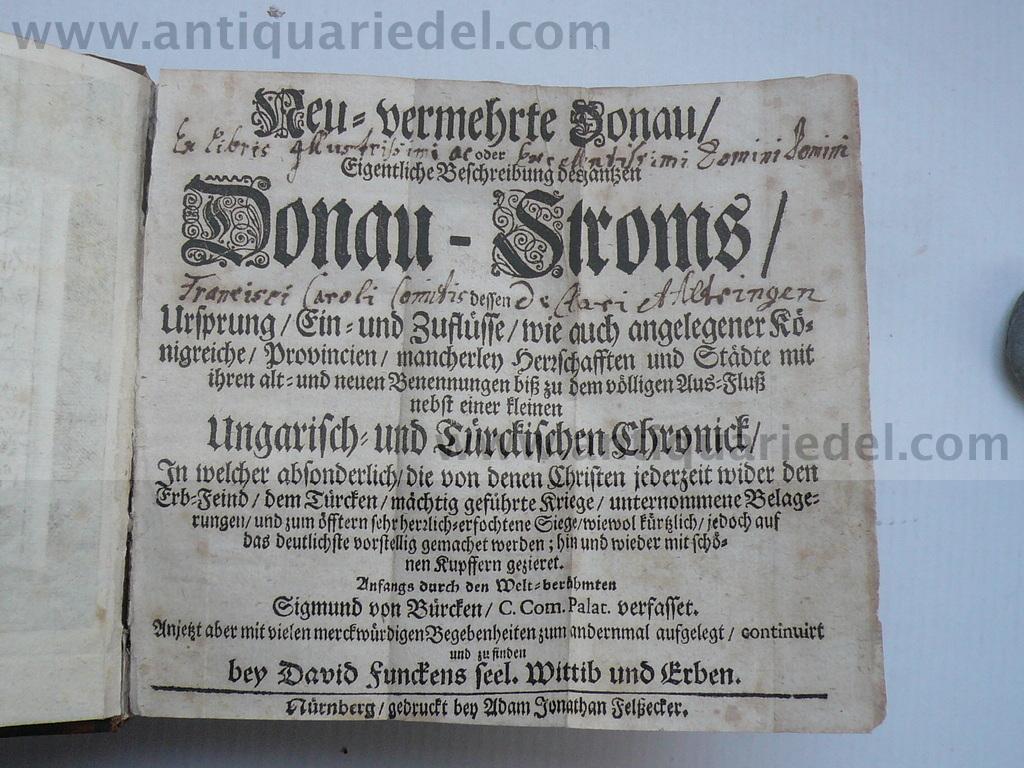 www.antiquariedel.com
Neu-vermehrte Donau/
Ex libris Illustrissimi ac oder Excellentissimi Domini Domini
Eigentliche Beschreibung deß gantzen
Donau-Stroms/
Francisci Caroli Comitis dessen de Clari et Altringen
Ursprung/ Ein- und Zuflüsse/ wie auch angelegener Kö-
nigreiche/ Provincien/ mancherley Herrschafften und Städte mit
ihren alt- und neuen Benennungen biß zu dem völligen Aus-Fluß
nebst einer kleinen
Ungarisch- und Türckischen Chronick/
www.antiquariedel.com
In welcher absonderlich/ die von denen Christen jederzeit wider den
Erb-Feind/ dem Türcken/ mächtig geführte Kriege/ unternommene Belage-
rungen/ und zum öfftern sehr herrlich-erfochtene Siege/ wiewol kürtzlich/ jedoch auf
das deutlichste vorstellig gemachet werden; hin und wieder mit schö-
nen Kupffern gezieret.
Anfangs durch den Welt-berühmten
Sigmund von Bürcken/ C. Com. Palat. verfasset.
Anjetzt aber mit vielen merckwürdigen Begebenheiten zum andernmal aufgelegt/ continuirt
und zu finden
bey David Funckens seel. Wittib und Erben.
Nürnberg/ gedruckt bey Adam Jonathan Felßecker.